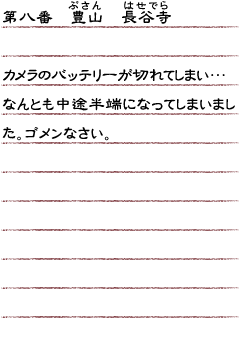 ぶさん はせでら
第八番 豊山 長谷寺
カメラのバッテリーが切れてしまい…
なんとも中途半端になってしまいまし
た。ゴメンなさい。